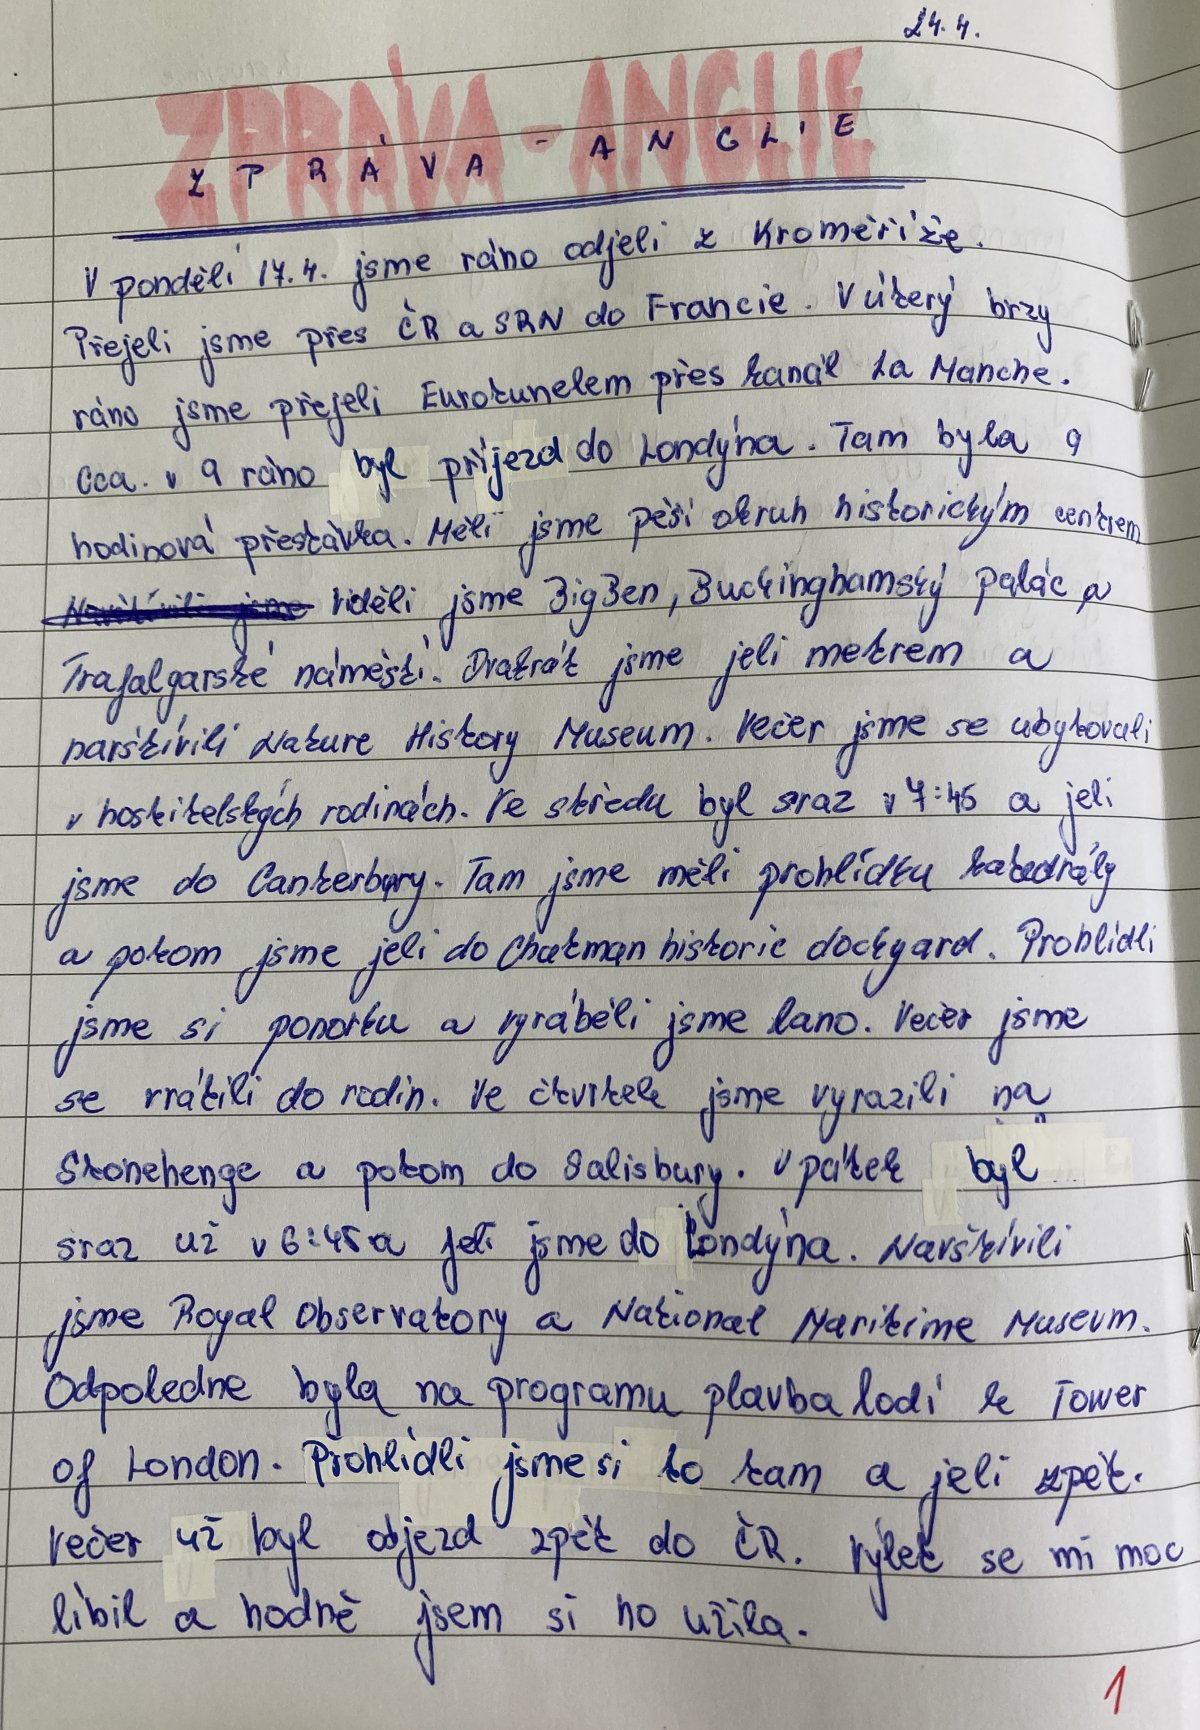 24.4.
ZPRÁVA-ANGLIE
ZPRÁVA - ANGLIE
V pondělí 17.4. jsme ráno odjeli z Kroměříže.
Přejeli jsme přes ČR a SRN do Francie. V úterý brzy
ráno jsme přejeli Eurotunelem přes kanál La Manche.
Cca. v 9 ráno byl příjezd do Londýna. Tam byla 9
hodinová přestávka. Měli jsme pěší okruh historickým centrem
Navštívili jsme viděli jsme BigBen, Buckinghamský palác a
Trafalgarské náměstí. Dvakrát jsme jeli metrem a
navštívili Nature History Museum. Večer jsme se ubytovali
v hostitelských rodinách. Ve středu byl sraz v 7:45 a jeli
jsme do Canterbury. Tam jsme měli prohlídku katedrály
a potom jsme jeli do Chatman historic dockyard. Prohlídli
jsme si ponorku a vyráběli jsme lano. Večer jsme
se vrátili do rodin. Ve čtvrtek jsme vyrazili na
Stonehenge a potom do Salisbury. V pátek byl
sraz už v 6:45 a jeli jsme do Londýna. Navštívili
jsme Royal Observatory a National Maritime Museum.
Odpoledne byla na programu plavba lodí k Tower
of London. Prohlídli jsme si to tam a jeli zpět.
Večer už byl odjezd zpět do ČR. Výlet se mi moc
líbil a hodně jsem si ho užila.
1